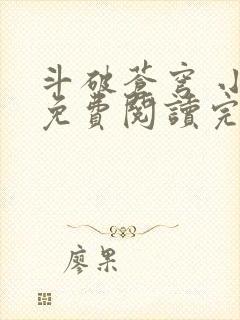 斗破蒼穹 小
免費閱讀完
廖果